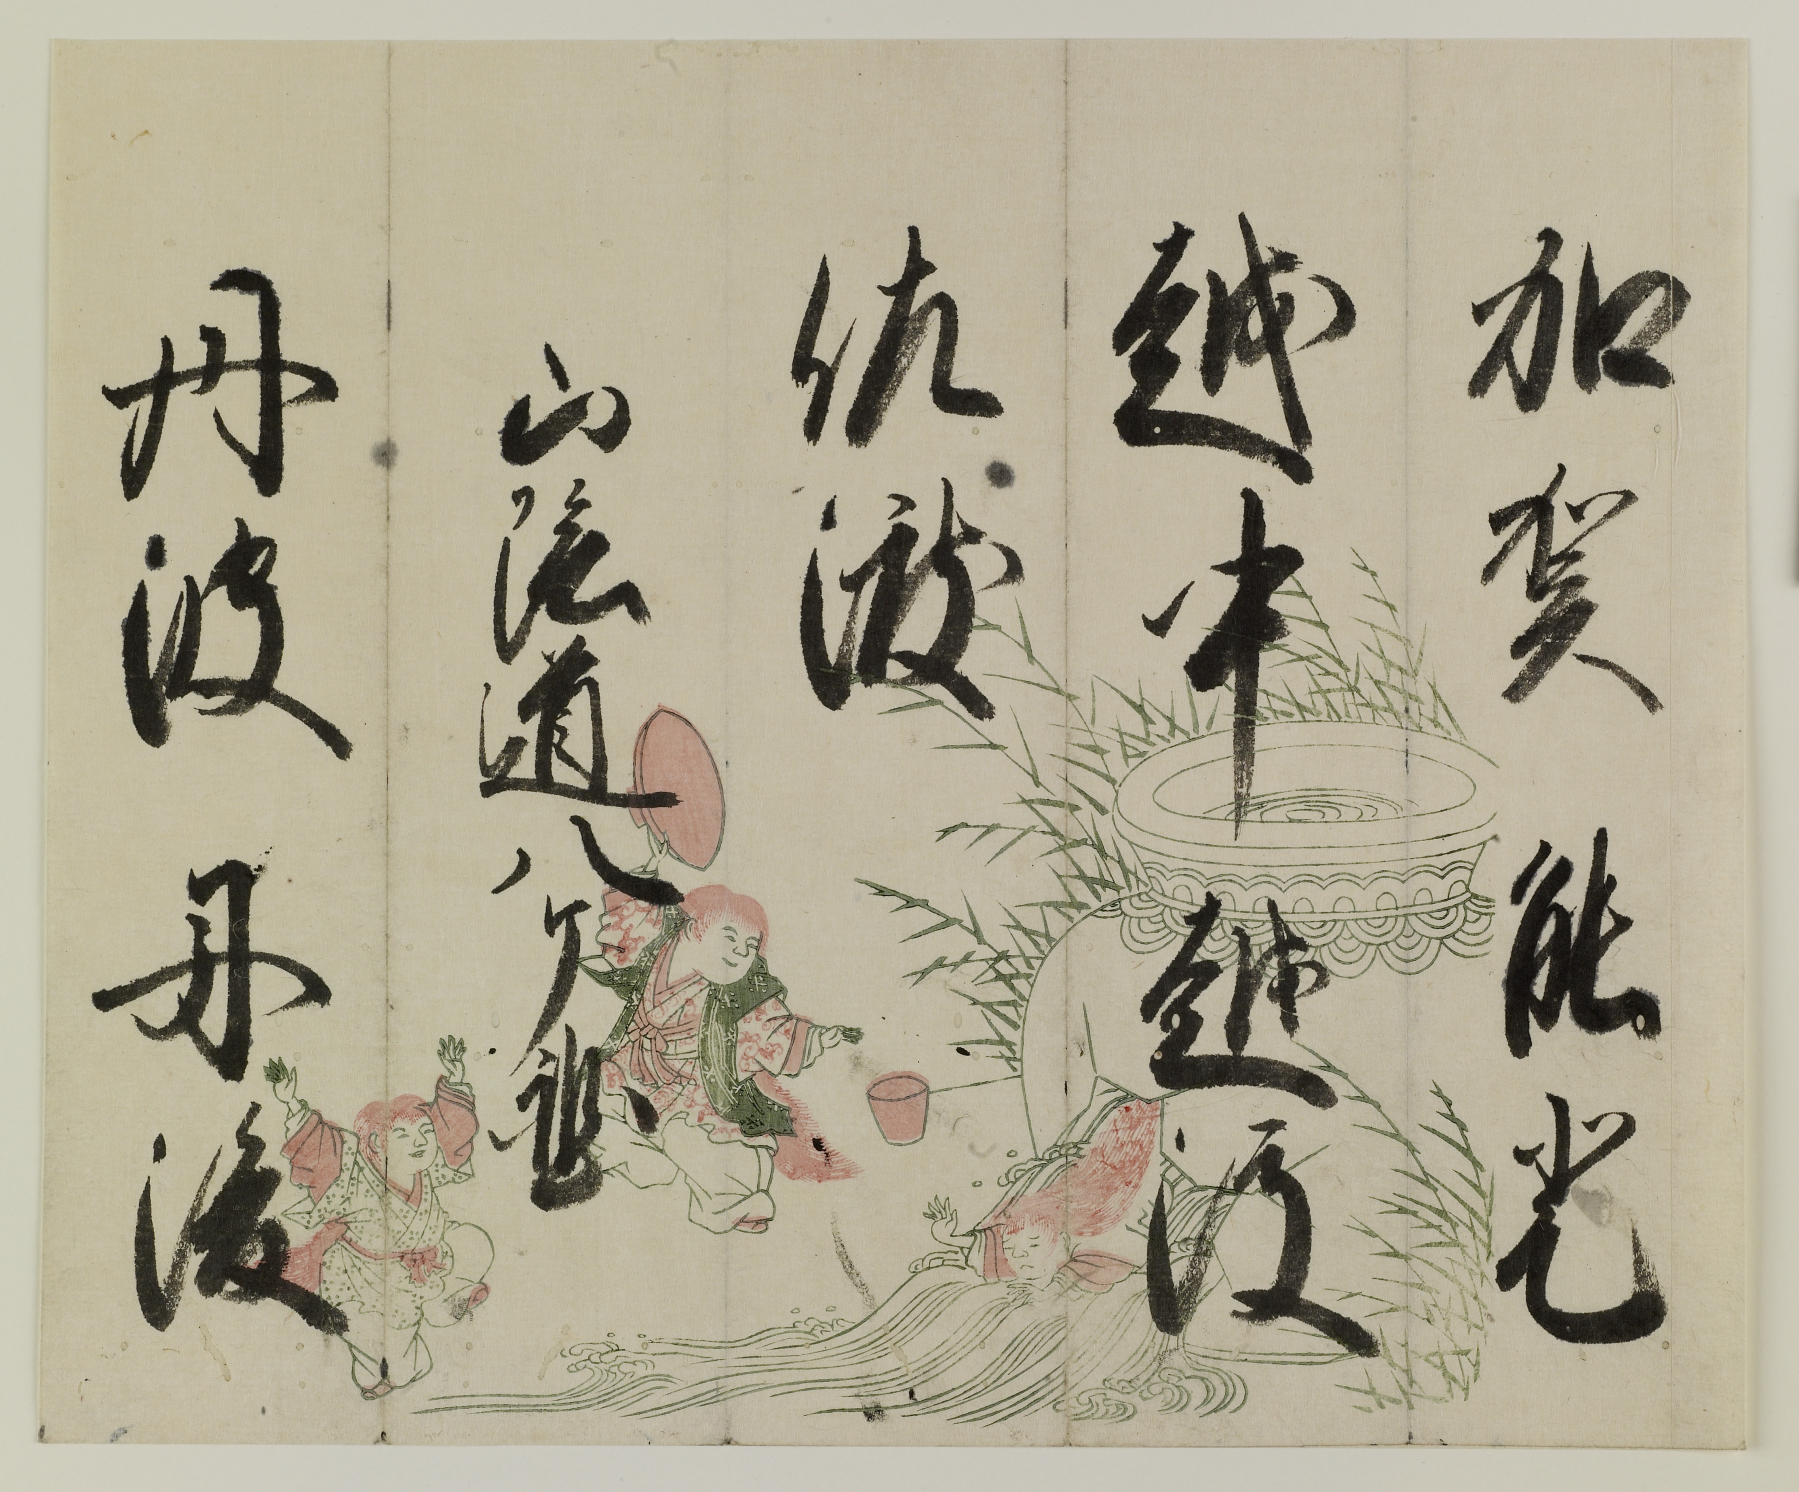 加賀 能登
越中 越後
佐渡
山陰道八ケ國
丹波 丹後